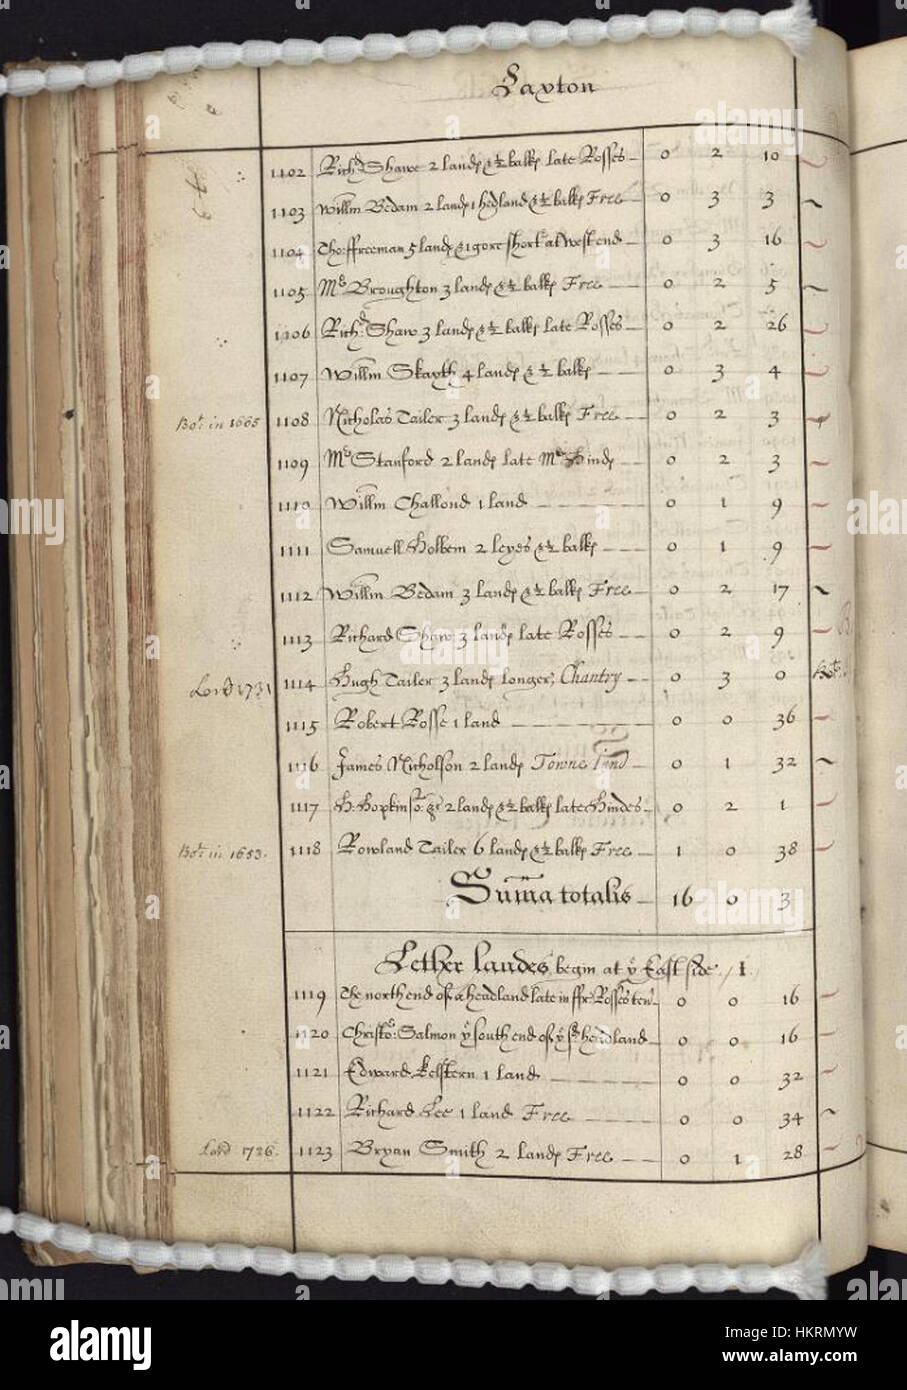 Laxton
1102 Rich:d Shawe 2 lands & ½ balke late Rosses 0 2 10
1103 Willm Bedam 2 lands 1 hedland & ½ balke Free 0 3 3
1104 Tho: ffreeman 5 lands & 1 gore short at West end 0 3 16
1105 Mr Broughton 3 lands & ½ balke Free 0 2 5
1106 Rich:d Shaw 3 lands & ½ balke late Rosses 0 2 26
1107 Willm Skayth 4 lands & ½ balke 0 3 4
Bo.t in 1665 1108 Nicholas Tailer 3 lands & ½ balke Free 0 2 3
1109 Mr Stanford 2 lands late Mr Hinds 0 2 3
1110 Willm Challond 1 land 0 1 9
1111 Samuell Holbem 2 leyes & ½ balke 0 1 9
1112 Willm Bedam 3 lands & ½ balke Free 0 2 17
1113 Richard Shaw 3 lands late Rosses 0 2 9
Lord 1731 1114 Hugh Tailer 3 lands longer, Chantry 0 3 0 Bo.t
1115 Robert Rosse 1 land 0 0 36
1116 James Nicholson 2 lands Towne land 0 1 32
1117 H: Hopkinso: gr 2 lands & ½ balke late Hindes 0 2 1
Bo.t in 1653. 1118 Rowland Tailer 6 lands & ½ balke Free 1 0 38
Suma totalis 16 0 3
Lether landes begin at ye East side / 1.
1119 The north end of a headland late in ffr: Rosses ten 0 0 16
1120 Christo: Salmon ye south end of ye sd headland 0 0 16
1121 Edward Kelstern 1 land 0 0 32
1122 Richard Lee 1 land Free 0 0 34
Lord 1726. 1123 Bryan Smith 2 lands Free 0 1 28
alamy
alamy stock photo
HKRMYW
www.alamy.com